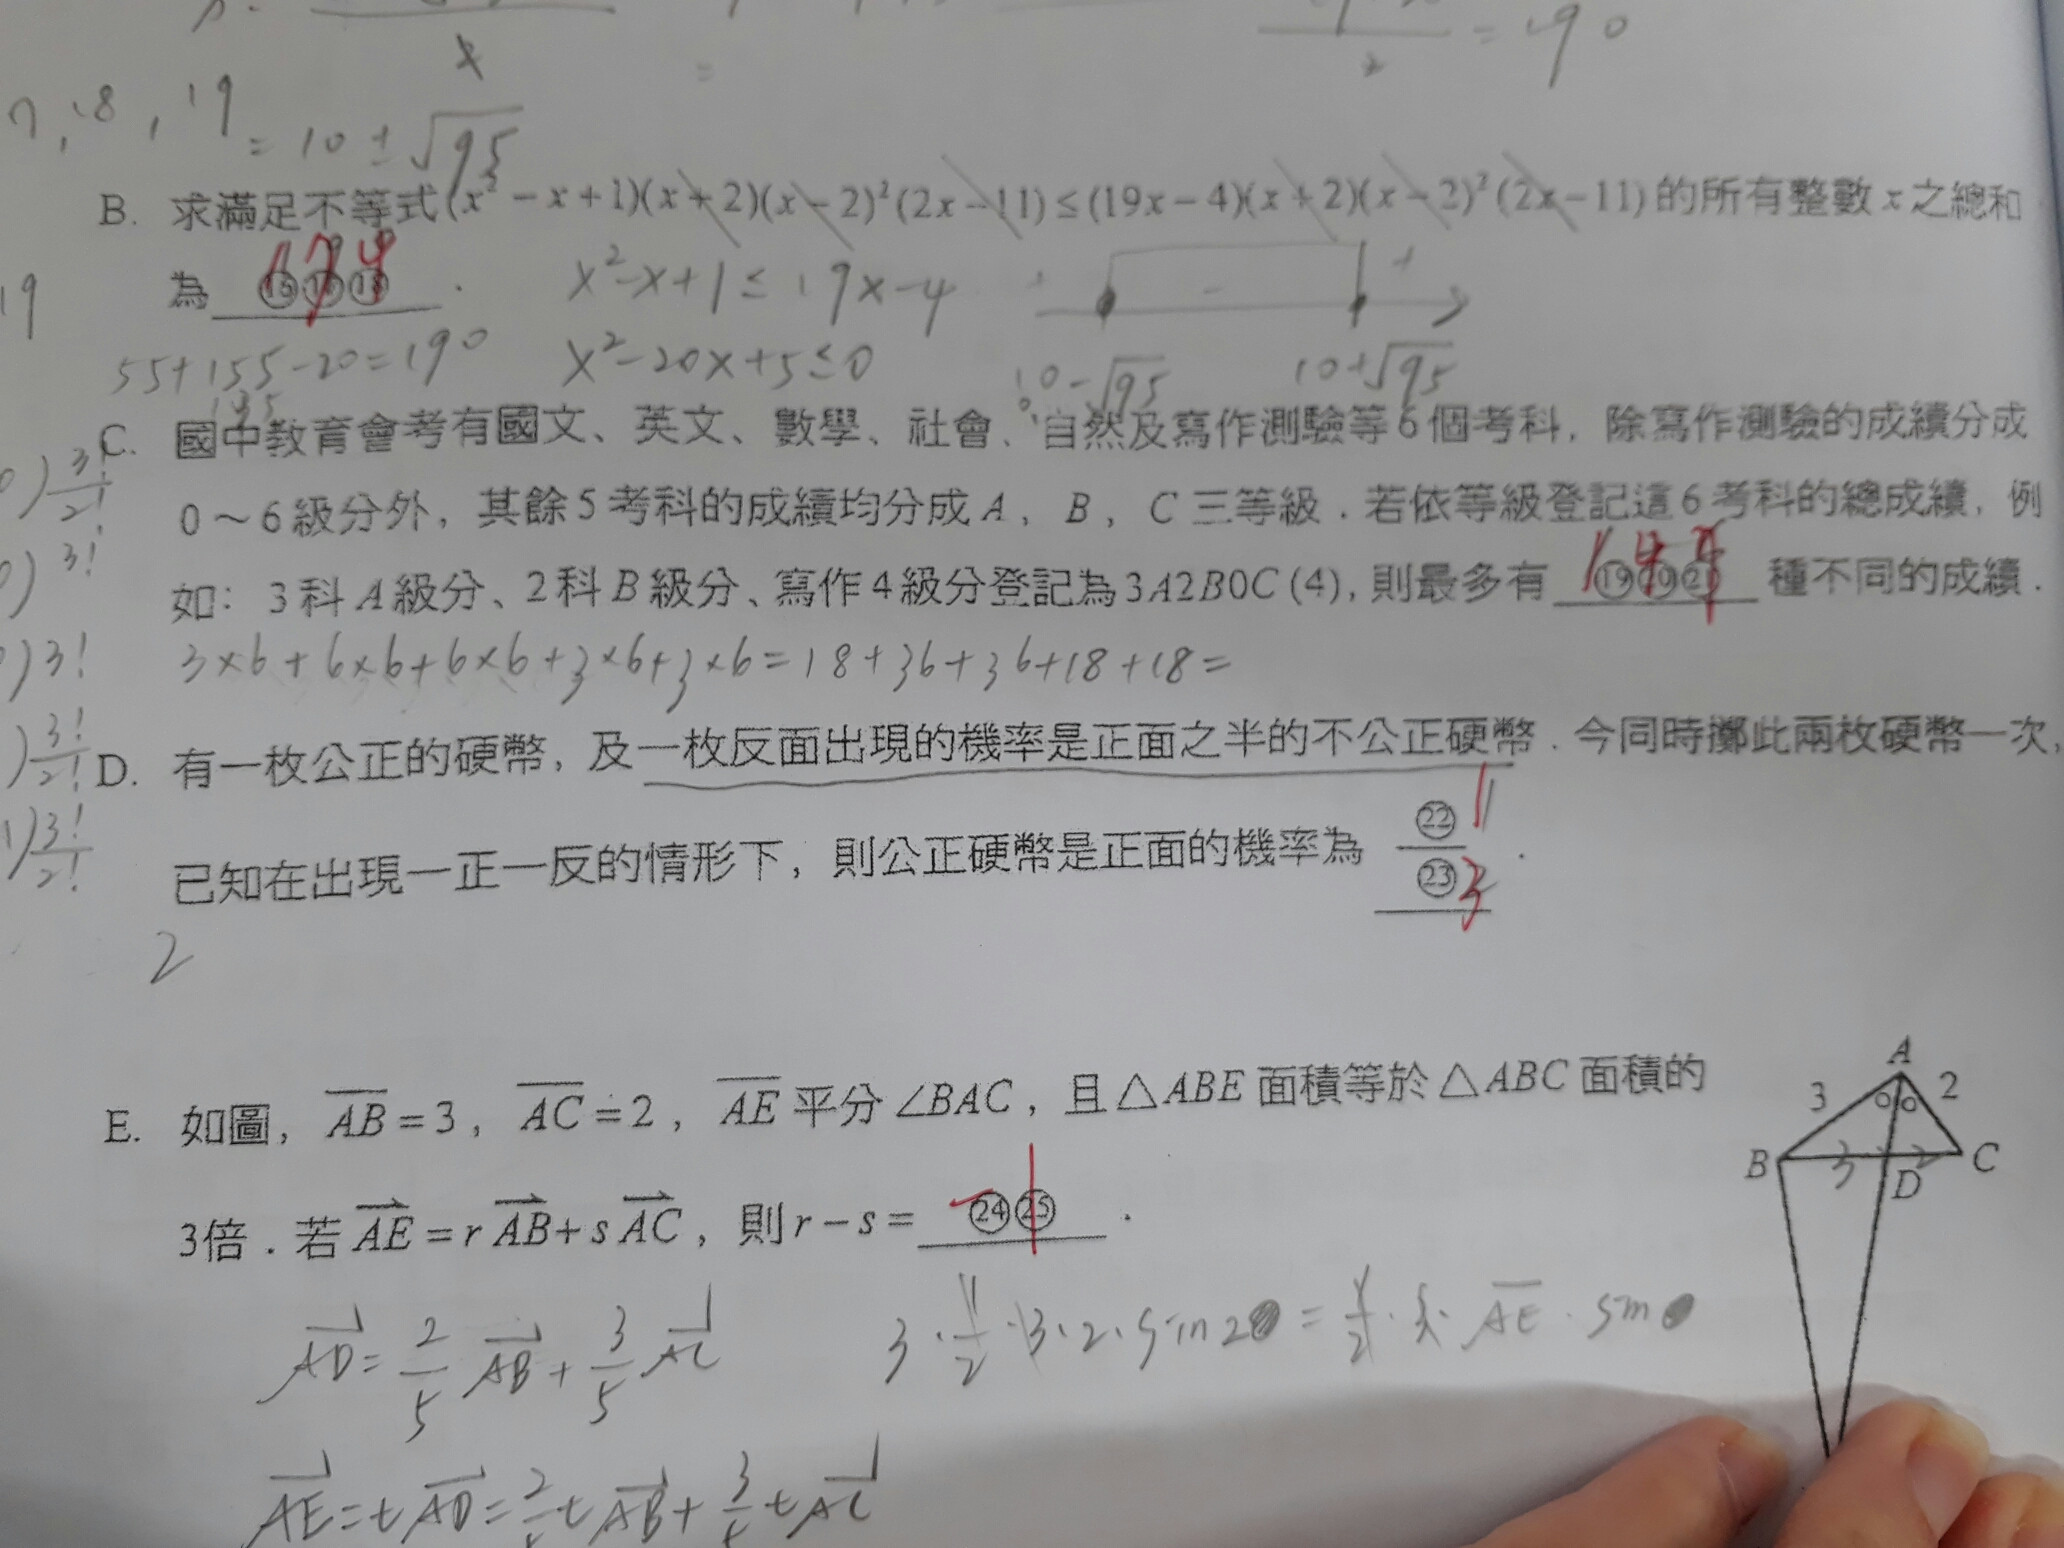 x
= 190
2
7, 18, 19
= 10 ± √95
B. 求滿足不等式(x² − x + 1)(x + 2)(x − 2)²(2x − 11) ≤ (19x − 4)(x + 2)(x − 2)²(2x − 11) 的所有整數 x 之總和
為 ⑯⑰⑱ .
174
x² − x + 1 ≤ 19x − 4
+ − +
19
55 + 155 − 20 = 190
135
x² − 20x + 5 ≤ 0
10 − √95
10 + √95
0.
C. 國中教育會考有國文、英文、數學、社會、自然及寫作測驗等6個考科,除寫作測驗的成績分成
0～6級分外,其餘5考科的成績均分成A,B,C三等級.若依等級登記這6考科的總成績,例
如:3科A級分、2科B級分、寫作4級分登記為3A2B0C(4),則最多有 ⑲⑳㉑ 種不同的成績.
147
) 3!/2!
) 3!
) 3!
) 3!/2!
1) 3!/2!
3×6 + 6×6 + 6×6 + 3×6 + 3×6 = 18 + 36 + 36 + 18 + 18 =
D. 有一枚公正的硬幣,及一枚反面出現的機率是正面之半的不公正硬幣.今同時擲此兩枚硬幣一次,
已知在出現一正一反的情形下,則公正硬幣是正面的機率為 ㉒/㉓ .
1
3
2
E. 如圖,AB = 3,AC = 2,AE 平分∠BAC,且△ABE 面積等於△ABC 面積的
3倍.若 AE = r AB + s AC,則 r − s = ㉔㉕ .
− 1
A
3 2
B 3 D 2 C
AD = 2/5 AB + 3/5 AC
3 · 1/2 · 3 · 2 · sin2 = 1/2 · 3 · AE · sin
AE = tAD = 2/5 tAB + 3/5 tAC